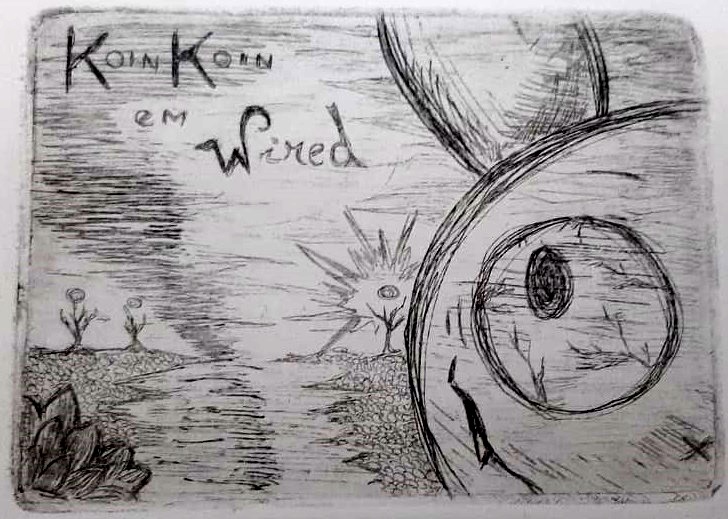 KOIN KOIN
em
Wired